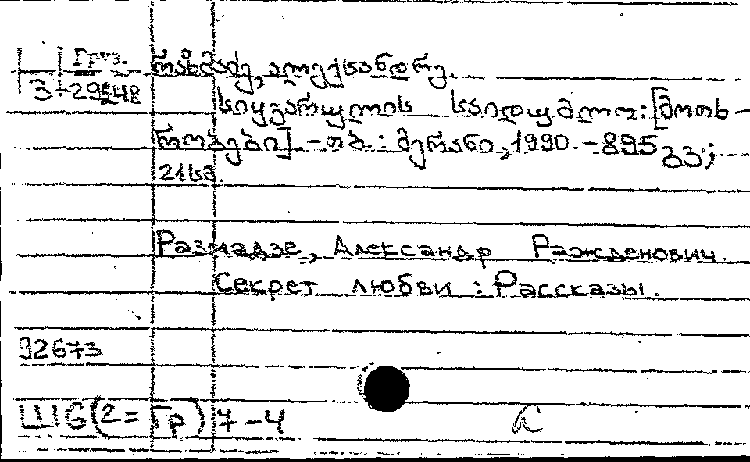 Груз. რაზმაძე, ალექსანდრე.
3-29548
სიყვარულის საიდუმლო: [მოთხ-
რობები]. - თბ.: მერანი, 1990. - 895 გვ;
21სმ.
Размадзе, Александр Ражденович.
Секрет любви : Рассказы.
92673
Ш6(2=Гр)7-4